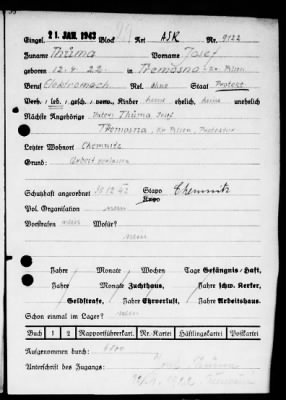 Eingel. 21. JAN. 1943 Block Nrt ASR Nr. 9122
Zuname Thůma Vorname Josef
geboren 12.4.22. in Tremosna, Kr. Pilsen
Beruf Elektromech. Rel. ohne Staat Protekt
Verh., led., gesch., verw. Kinder keine ehelich, keine unehelich
Nächste Angehörige Vater: Thůma Josef
Tremosna, Kr. Pilsen, Protektor
Letzter Wohnort Chemnitz
Grund:
Schutzhaft angeordnet 10.12.42 Stapo Chemnitz
Kripo
Pol. Organisation nein
Vorstrafen nein Wofür?
nein
Jahre Monate Wochen Tage Gefängnis/Haft,
Jahre Monate Zuchthaus, Jahre schw. Kerker,
Geldstrafe, Jahre Ehrverlust, Jahre Arbeitshaus.
Schon einmal im Lager? nein
Buch 1 2 Rapportführerkart. Nr. Kartei Häftlingskartei Postkartei
Aufgenommen durch:
Unterschrift des Zugangs: